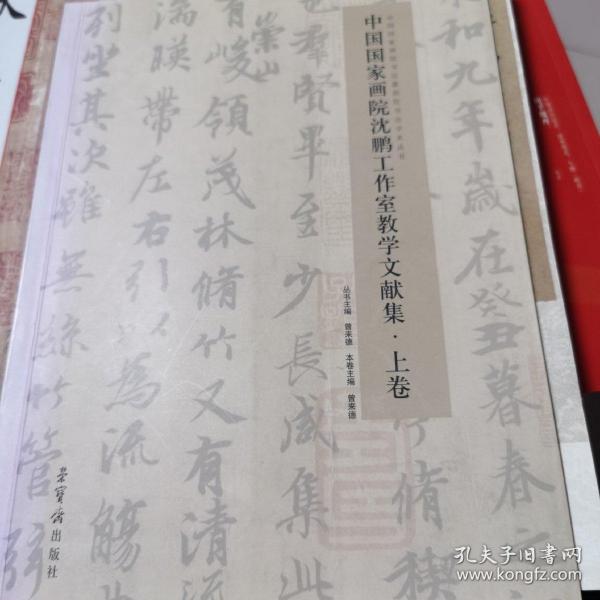 中国国家画院沈鹏工作室教学文献集·上卷
丛书主编 曾来德 本卷主编 曾来德
永和九年歲在癸丑暮春
脩禊
羣賢畢至少長咸集此
崇山
有峻領茂林脩竹又有清流
湍暎帶左右引以為流觴
列坐其次雖無絲竹管弦
荣宝斋出版社
孔夫子旧书网
www.kongfz.com